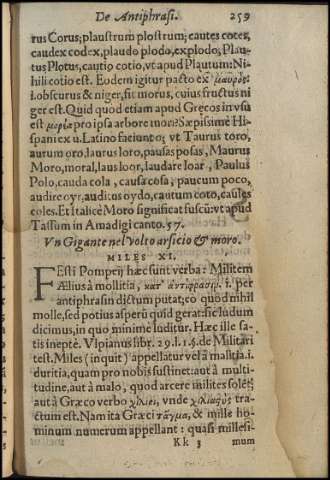 De Antiphrasi. 259
rus Corus; plaustrum plostrum; cautes cotes,
caudex codex, plaudo plodo, explodo; Plau-
tus Plotus, cautio cotio, vt apud Plautum: Ni-
hili cotio est. Eodem igitur pacto ex μαυρὸς:
i. obscurus & niger, fit morus, cuius fructus ni
ger est. Quid quod etiam apud Græcos in vsu
est μορέα pro ipsa arbore moro? Sæpissimè Hi-
spani ex u. Latino faciunt o; vt Taurus toro,
aurum oro, laurus loro, pausas posas, Maurus
Moro, moral, laus loor, laudare loar, Paulus
Polo, cauda cola, causa cosa, paucum poco,
audire oyr, auditus oydo, cautum coto, caules
coles. Et Italicè Moro significat fuscũ: vt apud
Tassum in Amadigi canto. 57.
Vn Gigante nel volto arsicio & moro.
MILES XI.
FEsti Pompeij hæc sunt verba: Militem
Ælius à mollitia, κατ' ἀντίφρασιν. i. per
antiphrasin dictum putat; eo quod nihil
molle, sed potius asperũ quid gerat: sic ludum
dicimus, in quo minimè luditur. Hæc ille sa-
tis ineptè. Vlpianus libr. 29. l. 1. §. de Militari
test. Miles (inquit) appellatur vel à malitia. i.
duritia, quam pro nobis sustinet: aut à multi-
tudine, aut à malo, quod arcere milites solẽt;
aut à Græco verbo χίλιοι, vnde χιλιαρχὸς tra-
ctum est. Nam ita Græci τάγμα, & mille ho-
minum numerum appellant: quasi millesi-
Kk 3 mum